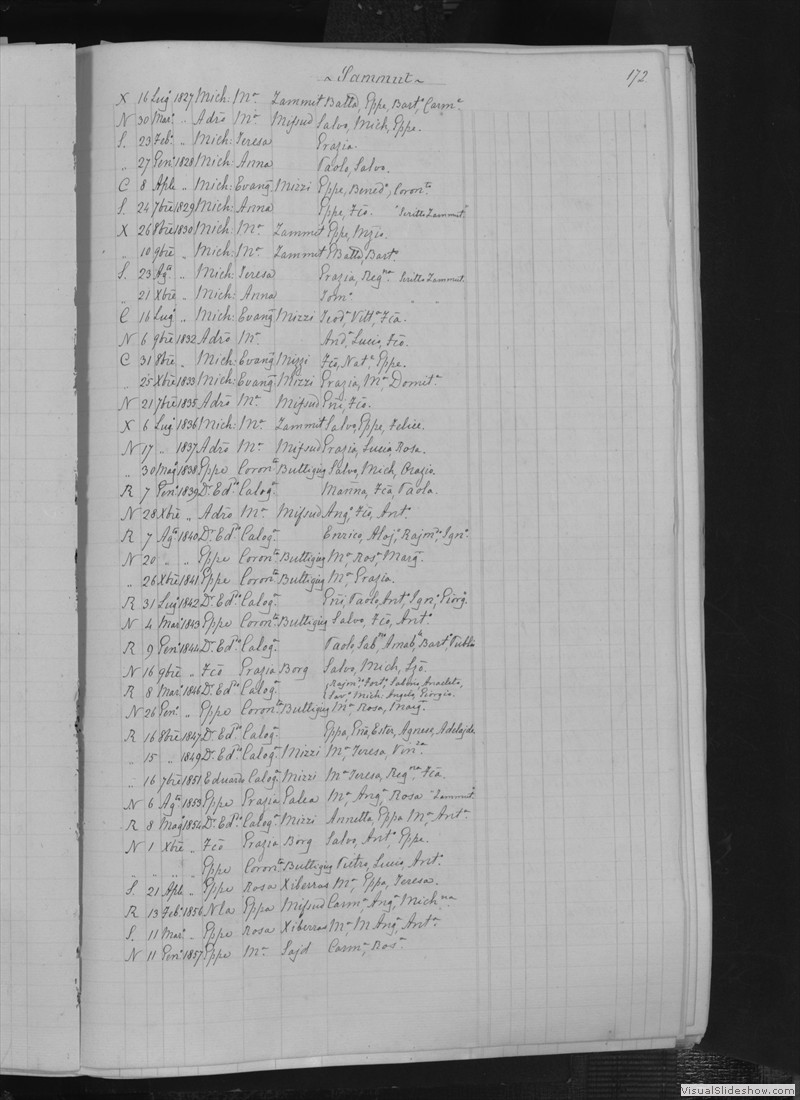 ~ Sammut ~
172
X 16 Lugº 1827 Mich: Mª Zammut Battª, Eppe, Bartº, Carmª
N 30 Marº „ Adrõ Mª Mifsud Salvo, Mich, Eppe.
S. 23 Febº „ Mich: Teresa Grazia.
„ 27 Genº 1828 Mich: Anna Paolo, Salvo.
C 8 Aple „ Mich: Evangª Mizzi Eppe, Benedº, Coronta
S. 24 7bre 1829 Mich: Anna Eppe, Fcõ. "Scritto Zammut"
X 26 8bre 1830 Mich: Mª Zammut Eppe,
„ 10 9bre „ Mich: Mª Zammut Battª Bartº
S. 23 Agto „ Mich: Teresa Grazia, Regna Scritto Zammut
„ 21 Xbre „ Mich: Anna Tomº „ „
C 16 Lugº „ Mich: Evangª Mizzi Teodª, Vittª, Fcã.
N 6 9bre 1832 Adrõ Mª Andª, Lucia, Fcõ.
C 31 8bre „ Mich: Evangª Mizzi Fcõ, Natª, Eppe.
„ 25 Xbre 1833 Mich: Evangª Mizzi Grazia, Mª, Domitª
N 21 7bre 1835 Adrõ Mª Mifsud Gio, Fcõ.
X 6 Lugº 1836 Mich: Mª Zammut Salvo, Eppe, Felice.
N 17 „ 1837 Adrõ Mª Mifsud Grazia, Lucia, Rosa.
„ 30 Magº 1838 Eppe Coronta Buttigieg Salvo, Mich, Grazia.
R 7 Genº 1839 Dr. Edº Calogª Marina, Fcã, Paola.
N 28 Xbre „ Adrõ Mª Mifsud Angº, Fcõ, Antº
R 7 Agto 1840 Dr. Edº Calogª Enrico, Aloj, Rajmdo, Ignº
N 20 „ „ Eppe Coronta Buttigieg Mª, Rosª, Margª
„ 26 Xbre 1841 Eppe Coronta Buttigieg Mª, Grazia.
R 31 Lugº 1842 Dr. Edº Calogª Gio, Paolo, Antº, Ignº, Giorgº
N 4 Marº 1843 Eppe Coronta Buttigieg Salvo, Fcõ, Antº
R 9 Genº 1844 Dr. Edº Calogª Paolo, Amabe, Bart, Publio
N 16 9bre „ Fcõ Grazia Borg Salvo, Mich,
R 8 Marº 1846 Dr. Edº Calogª Rajmdo, Fortº, Sabino, Anacleto,
Savº, Mich: Angelo, Giorgio.
N 26 Genº „ Eppe Coronta Buttigieg Mª, Rosa, Margª
R 16 8bre 1847 Dr. Edº Calogª Eppa, Giã, Ester, Agnese, Adelajde
„ 15 „ 1849 Dr. Edº Calogª Mizzi Mª, Teresa, Vinza
„ 16 7bre 1851 Eduardo Calogª Mizzi Mª Teresa, Regna, Fcã.
N 6 Agto 1853 Eppe Grazia Galea Mª, Angª, Rosa "Zammut"
R 8 Magº 1854 Dr. Edº Calogª Mizzi Annetta, Eppa Mª, Antª
N 1 Xbre „ Fcõ Grazia Borg Salvo, Antº, Eppe.
„ „ „ „ Eppe Coronta Buttigieg Pietro, Lucio, Antº
S. 21 Aple „ Eppe Rosa Xiberras Mª, Eppa, Teresa.
R 13 Febº 1856 Nla Eppa Mifsud Carmª, Angª, Michna
S. 11 Marº „ Eppe Rosa Xiberras Mª, M Angª, Antª
N 11 Genº 1857 Eppe Mª Sajd Carmª, Rosª
VisualSlideshow.com